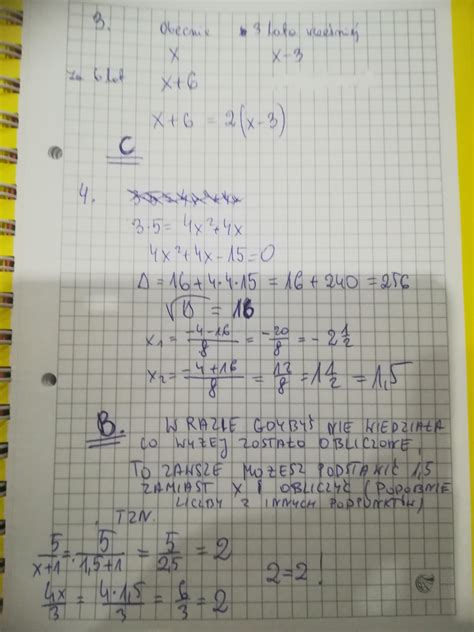 3. Obecnie 3 lata wcześniej
x x-3
za 6 lat x+6
x+6 = 2(x-3)
C
4.
3·5 = 4x²+4x
4x²+4x-15=0
Δ = 16+4·4·15 = 16+240 = 256
√Δ = 16
x₁ = \frac{-4-16}{8} = \frac{-20}{8} = -2\frac{1}{2}
x₂ = \frac{-4+16}{8} = \frac{12}{8} = 1\frac{1}{2} = 1,5
B. W RAZIE GDYBYŚ NIE WIEDZIAŁA
CO WYŻEJ ZOSTAŁO OBLICZONE,
TO ZAWSZE MOŻESZ PODSTAWIĆ 1,5
ZAMIAST X I OBLICZYĆ (PODOBNIE
LICZBY Z INNYCH PODPUNKTÓW)
TZN.
\frac{5}{x+1} = \frac{5}{1,5+1} = \frac{5}{2,5} = 2
2=2!
\frac{4x}{3} = \frac{4·1,5}{3} = \frac{6}{3} = 2